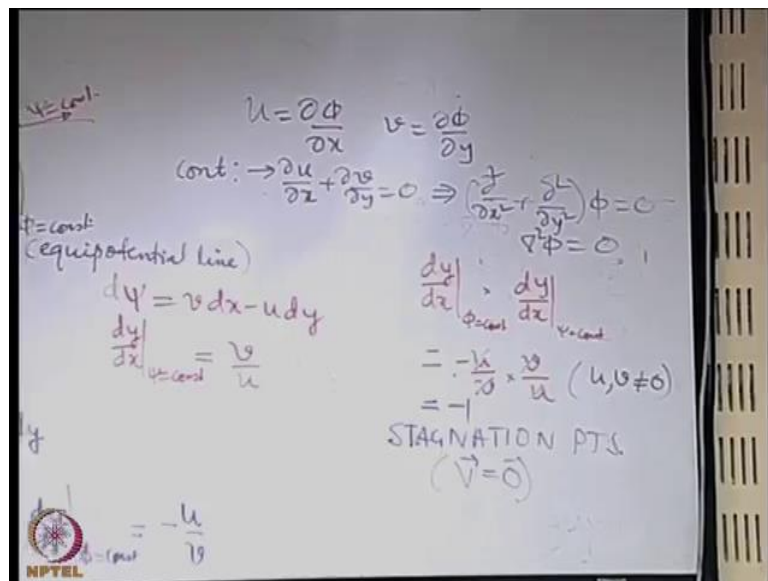 ψ=const.
u = ∂φ/∂x v = ∂φ/∂y
cont: → ∂u/∂x + ∂v/∂y = 0 ⇒ (∂²/∂x² + ∂²/∂y²) φ = 0
∇²φ = 0
φ=const
(equipotential line)
dψ = v dx - u dy
dy/dx|ψ=const = v/u
dy/dx|φ=const × dy/dx|ψ=const
= -u/v × v/u (u, v ≠ 0)
= -1
dy
STAGNATION PTS.
(V⃗ = 0⃗)
φ=const = -u/v
NPTEL